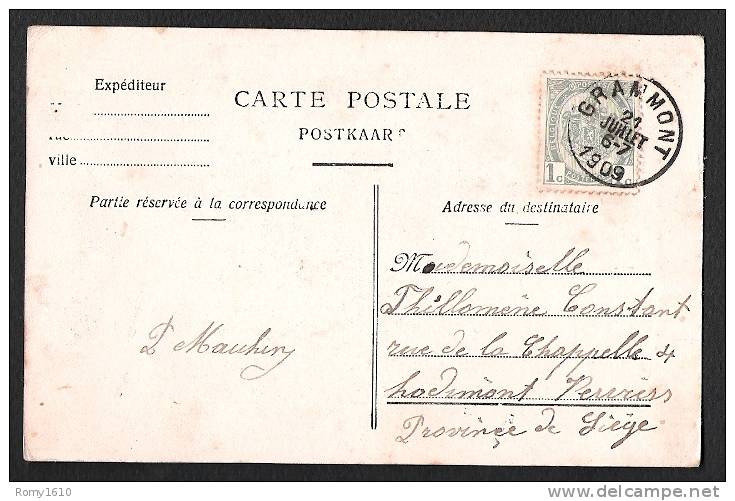 Expéditeur
ville
CARTE POSTALE
POSTKAAR
Partie réservée à la correspondance
Adresse du destinataire
GRAMMONT
21
JUILLET
6-7
1909
1c
Mademoiselle
Thillomène Constant
rue de la Chappelle 4
hodimont Verviers
Province de Liège
P Mauhin
Romy1610
delcampe.net